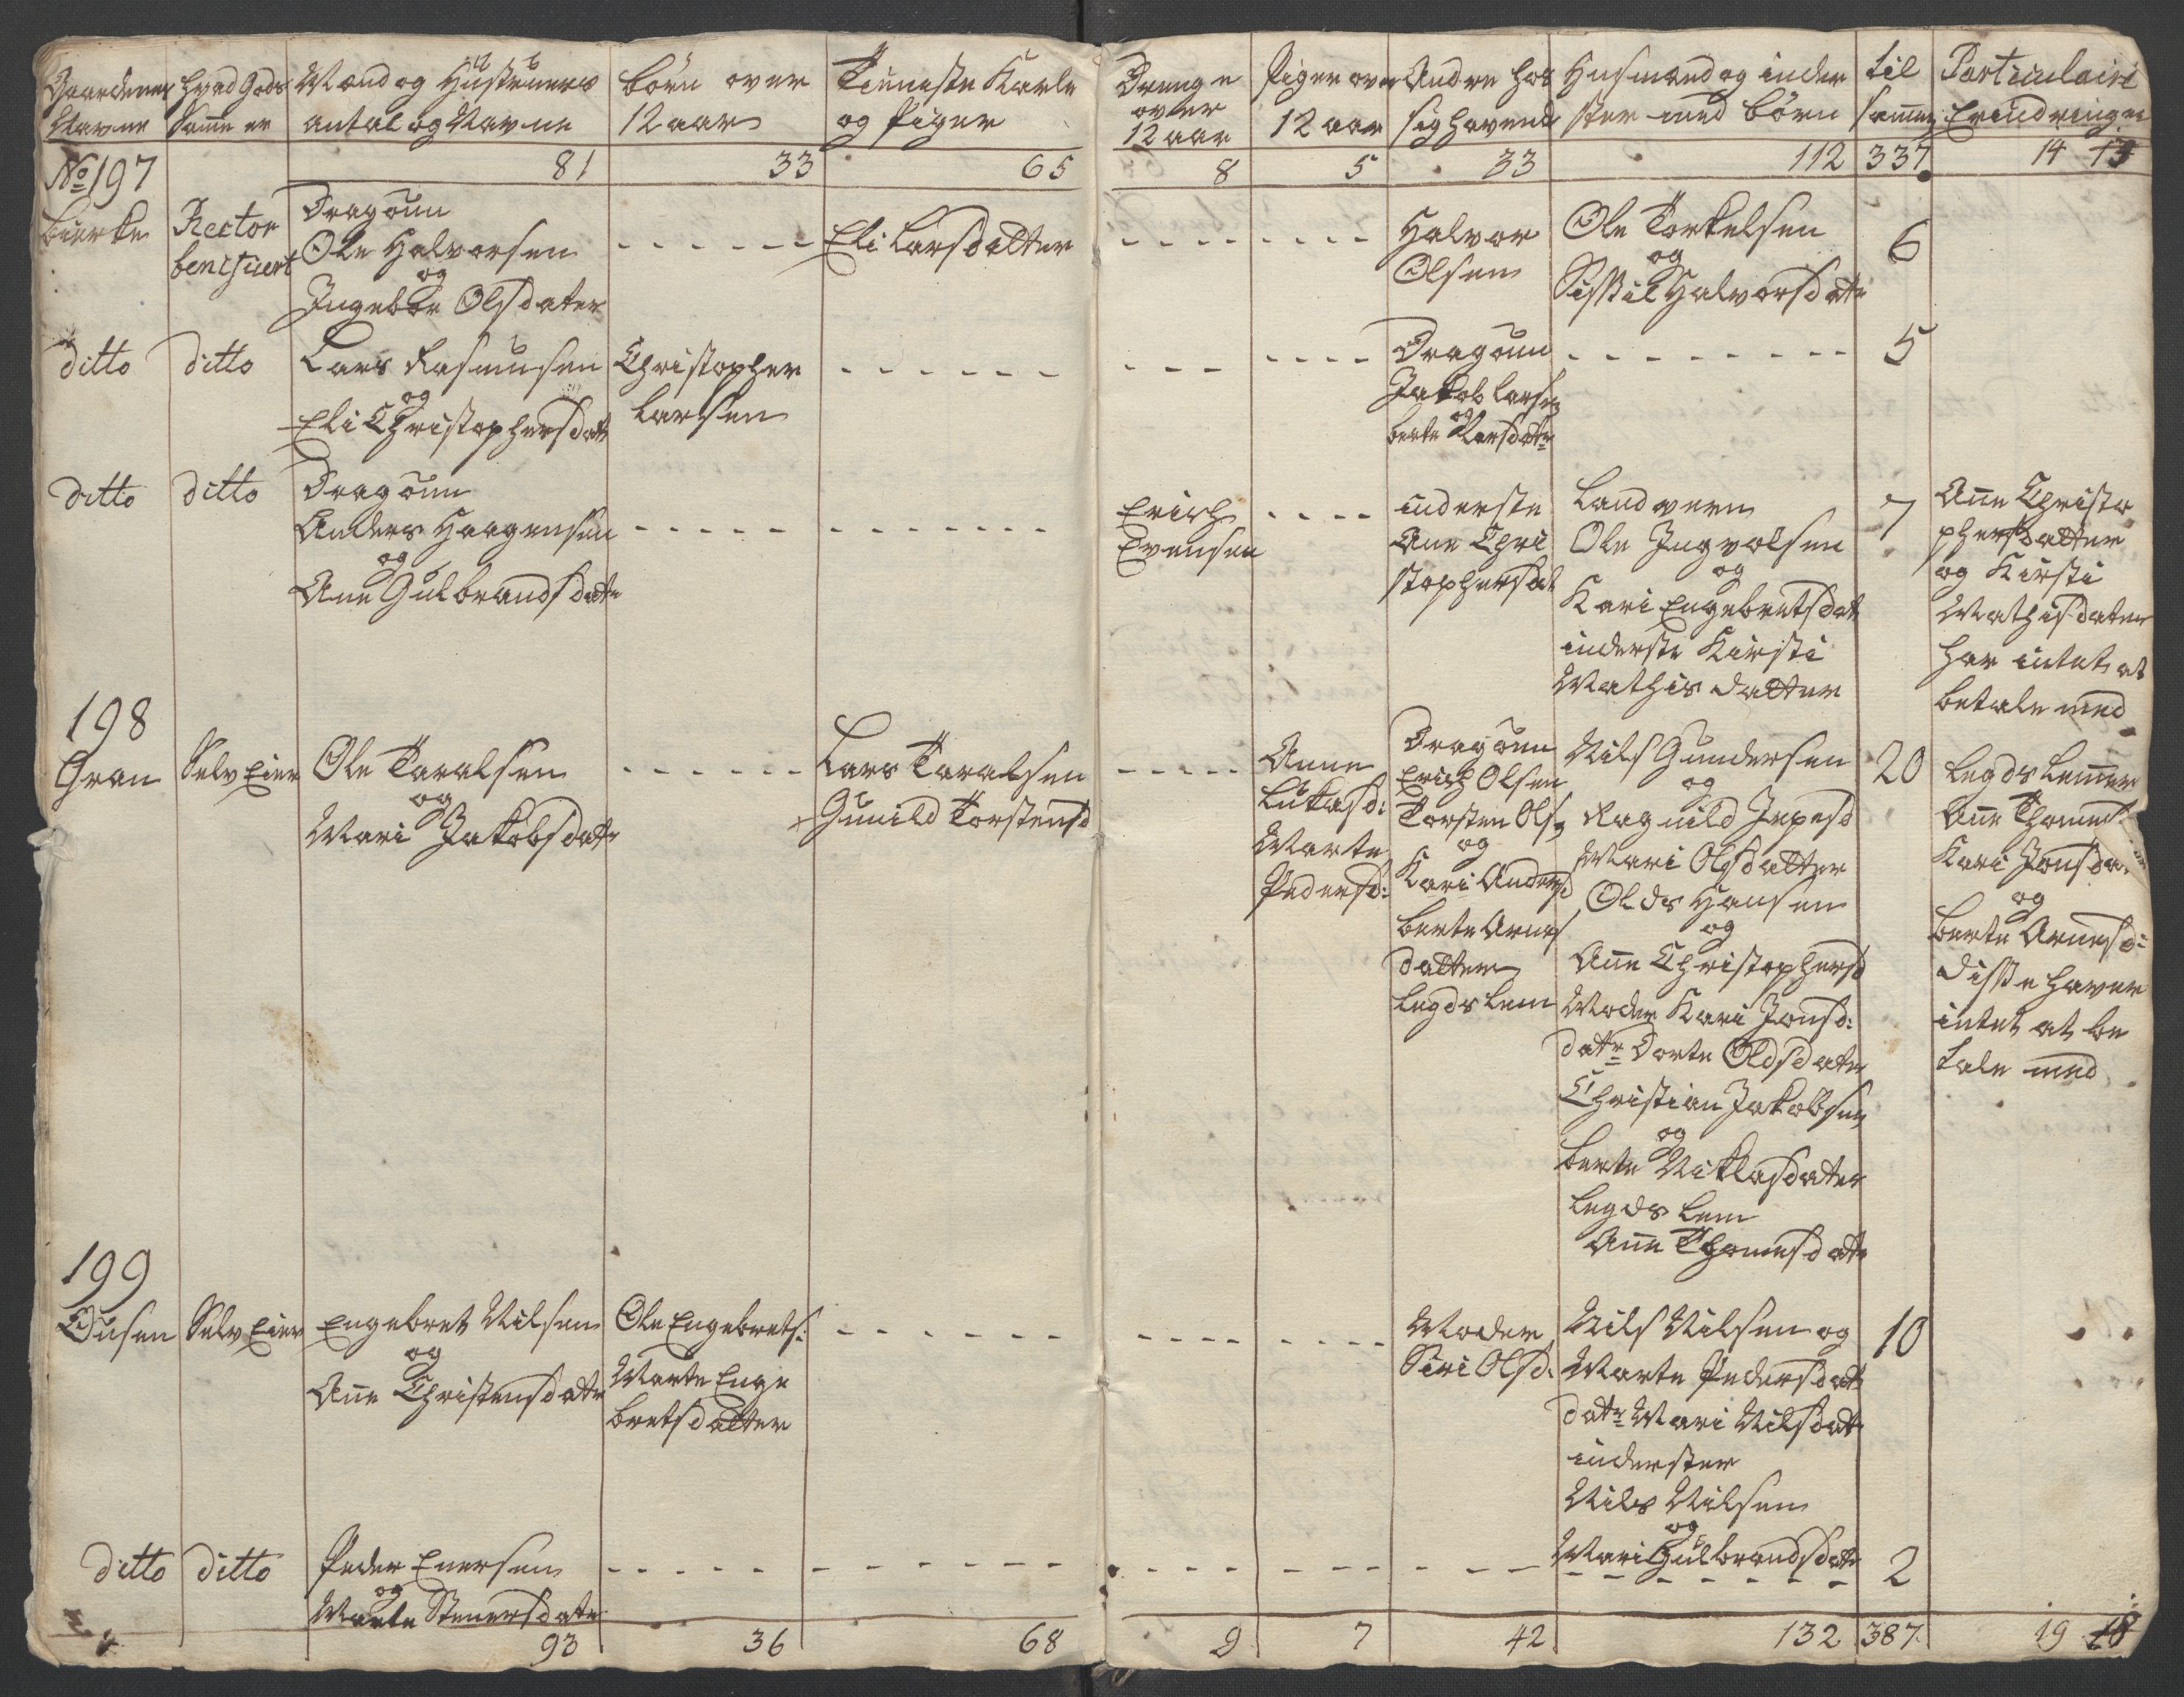 Gaardenes Hvad Gods Mænd og Hustruers børn over Tieniste Karle
Navne Samme er antal og Navne 12 aar og Piger
Drenge over 12 aar
Piger over 12 aar
Andre hos sig havende
Husmænd og inder ster med børn
til samen
Particulaire Erindringer
81 33 65 8 5 33 112 337 14 13
No 197
bierke
Rector
benificert
Dragoun
Ole Halvorsen
og
Ingebor Olsdater
Eli Larsdatter
Halvor
Olsen
Ole Torkelsen
og
Sissil Halvorsdatr
6
ditto ditto
Lars Rasmusen
og
Eli Christophersdatr
Christopher
Larsen
Dragoun
Jakob Larsen
og
berte Larsdatr
5
ditto ditto
Dragoun
Anders Haagensen
og
Ane Gulbrandsdatr
Erich
Evensen
inderste
Ane Chri
stophersdat
Landvern
Ole Ingvolsen
og
Kari Engebretsdat
inderste Kirsti
Mathis datter
7
Ane Christo
phersdatter
og Kirsti
Mathisdater
har intet at
betale med
198
Gran
Selv Eier
Ole Taralsen
og
Mari Jakobsdatr
Lars Taralsen
Gunild Torstensd
Anne
Lukasd:
Marte
Pedersd:
Dragoun
Erich Olsen
Torsten Ols
og
Kari Andersd
berte Arnes
datter
Legds lem
Nils Gundersen
og
Ragnild Jepesd
Mari Olsdatter
Olds Hansen
og
Ane Christophersd
Moder Kari Jonsd:
datr Dorte Oldsdater
Christian Jakobsen
og
berte Niklasdater
Legds lem
Ane Thomesdatr
20
Legds Lemer
Ane Thomesd
Kari Jonsda
og
berte Arnesd:
disse haver
intet at be
tale med
199
Ousen
Selv Eier
Engebret Nilsen
og
Ane Christensdatr
Ole Engebrets:
Marte Enge
bretsdatter
Moder
Siri Olsd:
Nils Nilsen og
Marte Pedersdatr
datr Mari Nilsdatr
inderster
Nils Nilsen
og
Mari Gulbrandsdatr
10
ditto ditto
Peder Enersen
og
Marte Stenersdatr
2
93 36 68 9 7 42 132 387 19 18